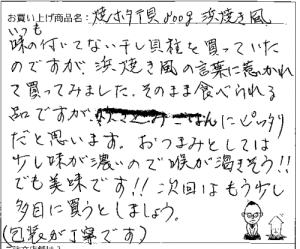 お買い上げ商品名:焼ホタテ貝 800g 浜焼き風
いつも
味の付いてない干し貝柱を買っていた
のですが、浜焼き風の言葉に惹かれ
て買ってみました。そのまま食べられる
品ですが ごはんにピッタリ
だと思います。おつまみとしては
少し味が濃いので喉が渇きそう!!
でも美味です!!次回はもう少し
多目に買うとしましょう。
(包装が丁寧です)